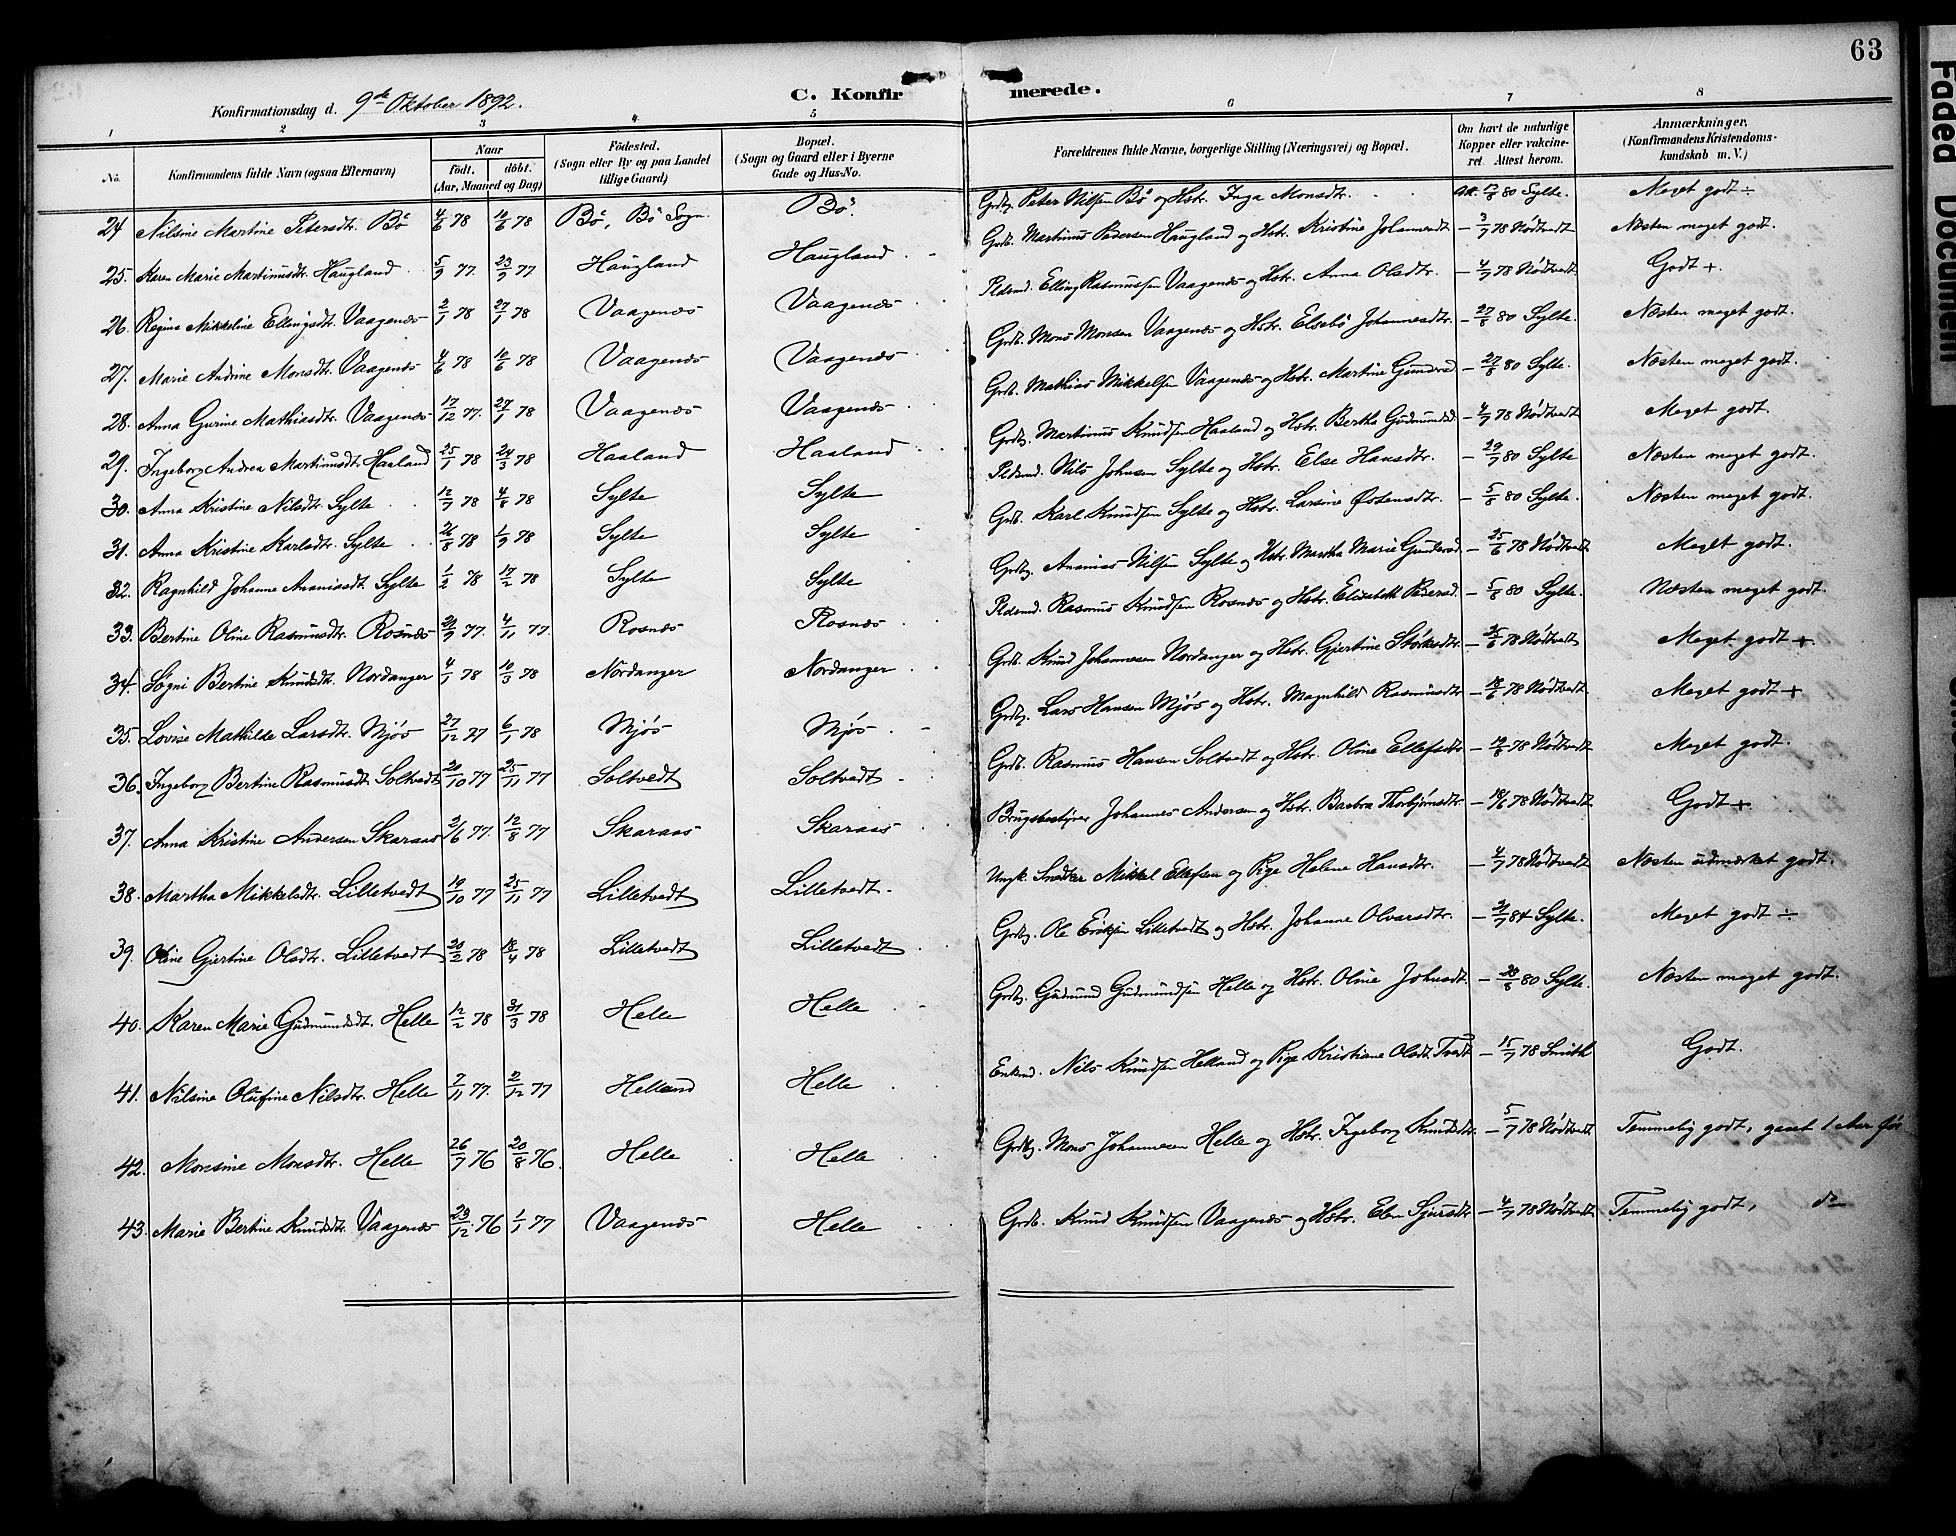 63
Konfirmationsdag d. 9de Oktober 1892.
C. Konfirmerede.
1 2 3 4 5 6 7 8
No.
Konfirmandens fulde Navn (ogsaa Efternavn)
Naar
født. døbt.
(Aar, Maaned og Dag)
Födested.
(Sogn eller By og paa Landet
tillige Gaard)
Bopæl.
(Sogn og Gaard eller i Byerne
Gade og Hus-No.
Forældrenes fulde Navne, borgerlige Stilling (Næringsvei) og Bopæl.
Om havt de naturlige
Kopper eller vakcine-
ret. Attest herom.
Anmærkninger.
(Konfirmandens Kristendoms-
kundskab m. V.)
24 Nilsine Martine Petersdtr. Bö 4/6 78 10/6 78 Bö, Bö Sogn. Bö. Grdbg. Peter Nilsen Bö og Hstr. Inga Monsdtr. Att. 12/8 80 Sylte. Meget godt ÷
25. Karen Marie Martinusdtr. Haugland 5/9 77. 23/9 77 Haugland Haugland Grdb. Martinus Pedersen Haugland og Hstr. Kristine Johannesdt. – 3/7 78 Nödtvedt Næsten meget godt.
26. Regine Mikkeline Ellingsdtr. Vaagenæs 2/1 78 27/1 78 Vaagenæs Vaagenæs Pldsmd. Elling Rasmussen Vaagenæs og Hstr. Anna Olsdtr. – 4/7 78 Nödtvedt Godt +.
27. Marie Andrine Monsdtr. Vaagenæs 4/6 78 10/6 78 Vaagenæs Vaagenæs Grdb. Mons Monsen Vaagenæs og Hstr. Elsebö Johannesdtr. – 27/8 80 Sylte. Næsten meget godt.
28. Anna Gurine Mathiasdtr. Vaagenæs 17/12 77. 27/1 78 Vaagenæs Vaagenæs Grdb. Mathias Mikkelsen Vaagenæs og Hstr. Martine Gundersd. – 27/8 80 Sylte. Næsten meget godt.
29. Ingeborg Andrea Martinusdt. Haaland 25/1 78 24/3 78 Haaland Haaland Grdbg. Martinus Knudsen Haaland og Hstr. Bertha Gudmundsd. – 4/7 78 Nödtvedt Meget godt.
30. Anna Kristine Nilsdtr. Sylte 12/7 78 4/8 78 Sylte Sylte Pldsmd. Nils Johnsen Sylte og Hstr. Else Hansdtr. – 29/7 80 Sylte Næsten meget godt.
31. Anna Kristine Karlsdtr. Sylte 26/8 78 1/9 78 Sylte Sylte Grdb. Karl Knudsen Sylte og Hstr. Larsine Østensdtr. – 5/8 80 Sylte. Næsten meget godt.
32. Ragnhild Johanne Ananiasdt. Sylte 1/2 78 17/2 78 Sylte Sylte Grdbg. Ananias Nilsen Sylte og Hstr. Martha Marie Gundersd. – 25/6 78 Nödtvedt Meget godt.
33. Bertine Oline Rasmusdtr. Rosnæs 21/9 77. 4/11 77. Rosnæs Rosnæs Pldsmd. Rasmus Knudsen Rosnæs og Hstr. Elisabeth Pedersd. – 5/8 80 Sylte. Næsten meget godt.
34. Sögni Bertine Knudsdt. Nordanger 4/1 78 10/3 78 Nordanger Nordanger Grdb. Knud Johannesen Nordanger og Hstr. Gjertine Störksdtr. – 25/6 78 Nödtvedt Meget godt +.
35. Lovise Mathilde Larsdtr. Mjös 27/12 77 6/1 78 Mjös Mjös Grdbg. Lars Hansen Mjös og Hstr. Magnhild Rasmusdtr – 18/6 78 Nödtvedt Meget godt +
36. Ingeborg Bertine Rasmusdt. Soltvedt 20/10 77 25/11 77 Soltvedt Soltvedt Grdb. Rasmus Hansen Soltvedt og Hstr. Oline Ellefsdtr. – 78 Nödtvedt Meget godt.
37. Anna Kristine Andersen Skaraas 2/6 77. 12/8 77 Skaraas Skaraas Brugsbestyrer Johannes Andersen og Hstr. Barbra Thorbjörnsdtr. – 18/6 78 Nödtvedt Godt +
38. Martha Mikkelsdtr. Lilletvedt 19/10 77 25/11 77 Lilletvedt Lilletvedt. Ungk. Snedker Mikkel Ellefsen og Pige Helene Hansdtr. – 4/7 78 Nödtvedt Næsten udmærket godt.
39. Oline Gjertine Olsdtr. Lilletvedt 20/2 78 18/4 78 Lilletvedt Lilletvedt Grdbg. Ole Eriksen Lilletvedt og Hstr. Johanne Olvarsdtr. – 31/7 84 Sylte. Meget godt ÷
40. Karen Marie Gudmundsdt. Helle 12/2 78 31/3 78 Helle Helle Grdbg. Gudmund Gudmundsen Helle og Hstr. Oline Johnsdt. – 28/8 80 Sylte. Næsten meget godt.
41. Nilsine Olufine Nilsdtr. Helle 7/11 77. 2/12 77 Helland Helle Enkemd. Nils Knudsen Helland og Pige Kristiane Olsdt. Tvedt – 15/7 78 Smith Godt.
42. Monsine Monsdtr. Helle 26/7 76 20/8 76. Helle Helle Grdbg. Mons Johannesen Helle og Hstr. Ingeborg Knudsdtr. – 5/7 78 Nödtvedt Temmelig godt, gaaet 1 Aar för
43. Marie Bertine Knudsdtr. Vaagenæs 23/12 76 1/1 77 Vaagenæs Helle Grdb. Knud Knudsen Vaagenæs og Hstr. Elen Sjursdtr – 4/7 78 Nödtvedt Temmelig godt, do
Faded Document